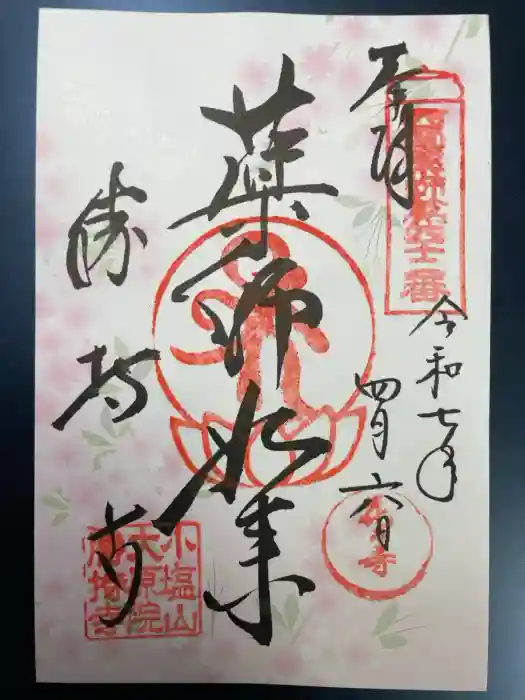 奉拝
西国薬師第四十二番
令和七年
四月六日
薬師如来
勝持寺
小塩山
大原院
勝持寺